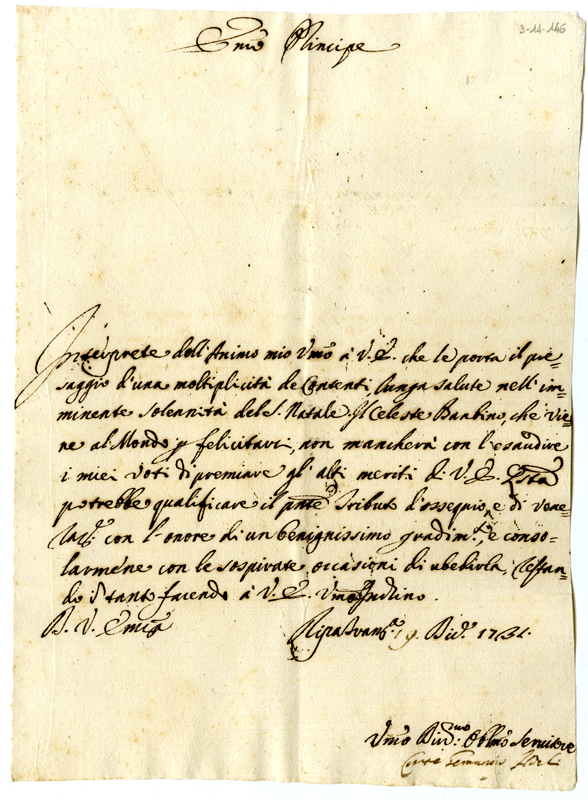 3-14-146
Emo Principe
Interprete dell'Animo mio Vmo à V. E. che le porta il pre=
saggio d'una moltiplicità de Contenti, lunga salute nell'im=
minente solennità del S. Natale. Il Celeste Banbino, che vie=
ne al Mondo p felicitarci, non mancherà con l'esaudire
i miei voti di premiare gl'alti meriti di V. E.
potrebbe qualificare il pnte Tributo d'ossequio, e di vene=
razne con l'onore di un benignissimo gradimto, e conso=
larmene con le sospirate occasioni di ubedirla,
do facendo à V. E. Vmo Inchino.
B. V. Emza
Ripatransa 9. Dice 1731.
Vmo Divmo: Obblmo Servitore